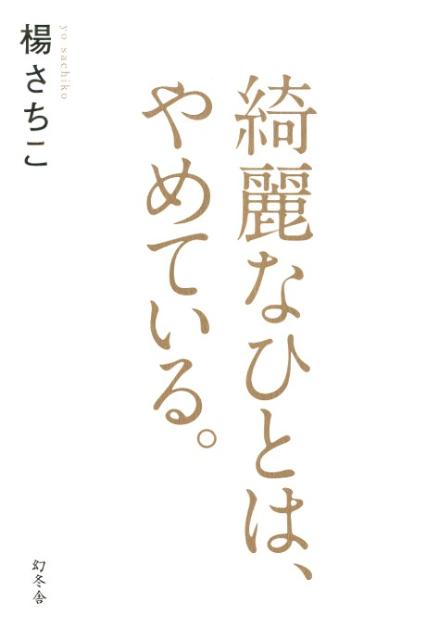 綺麗なひとは、
やめている。
楊さちこ
yo sachiko
幻冬舎